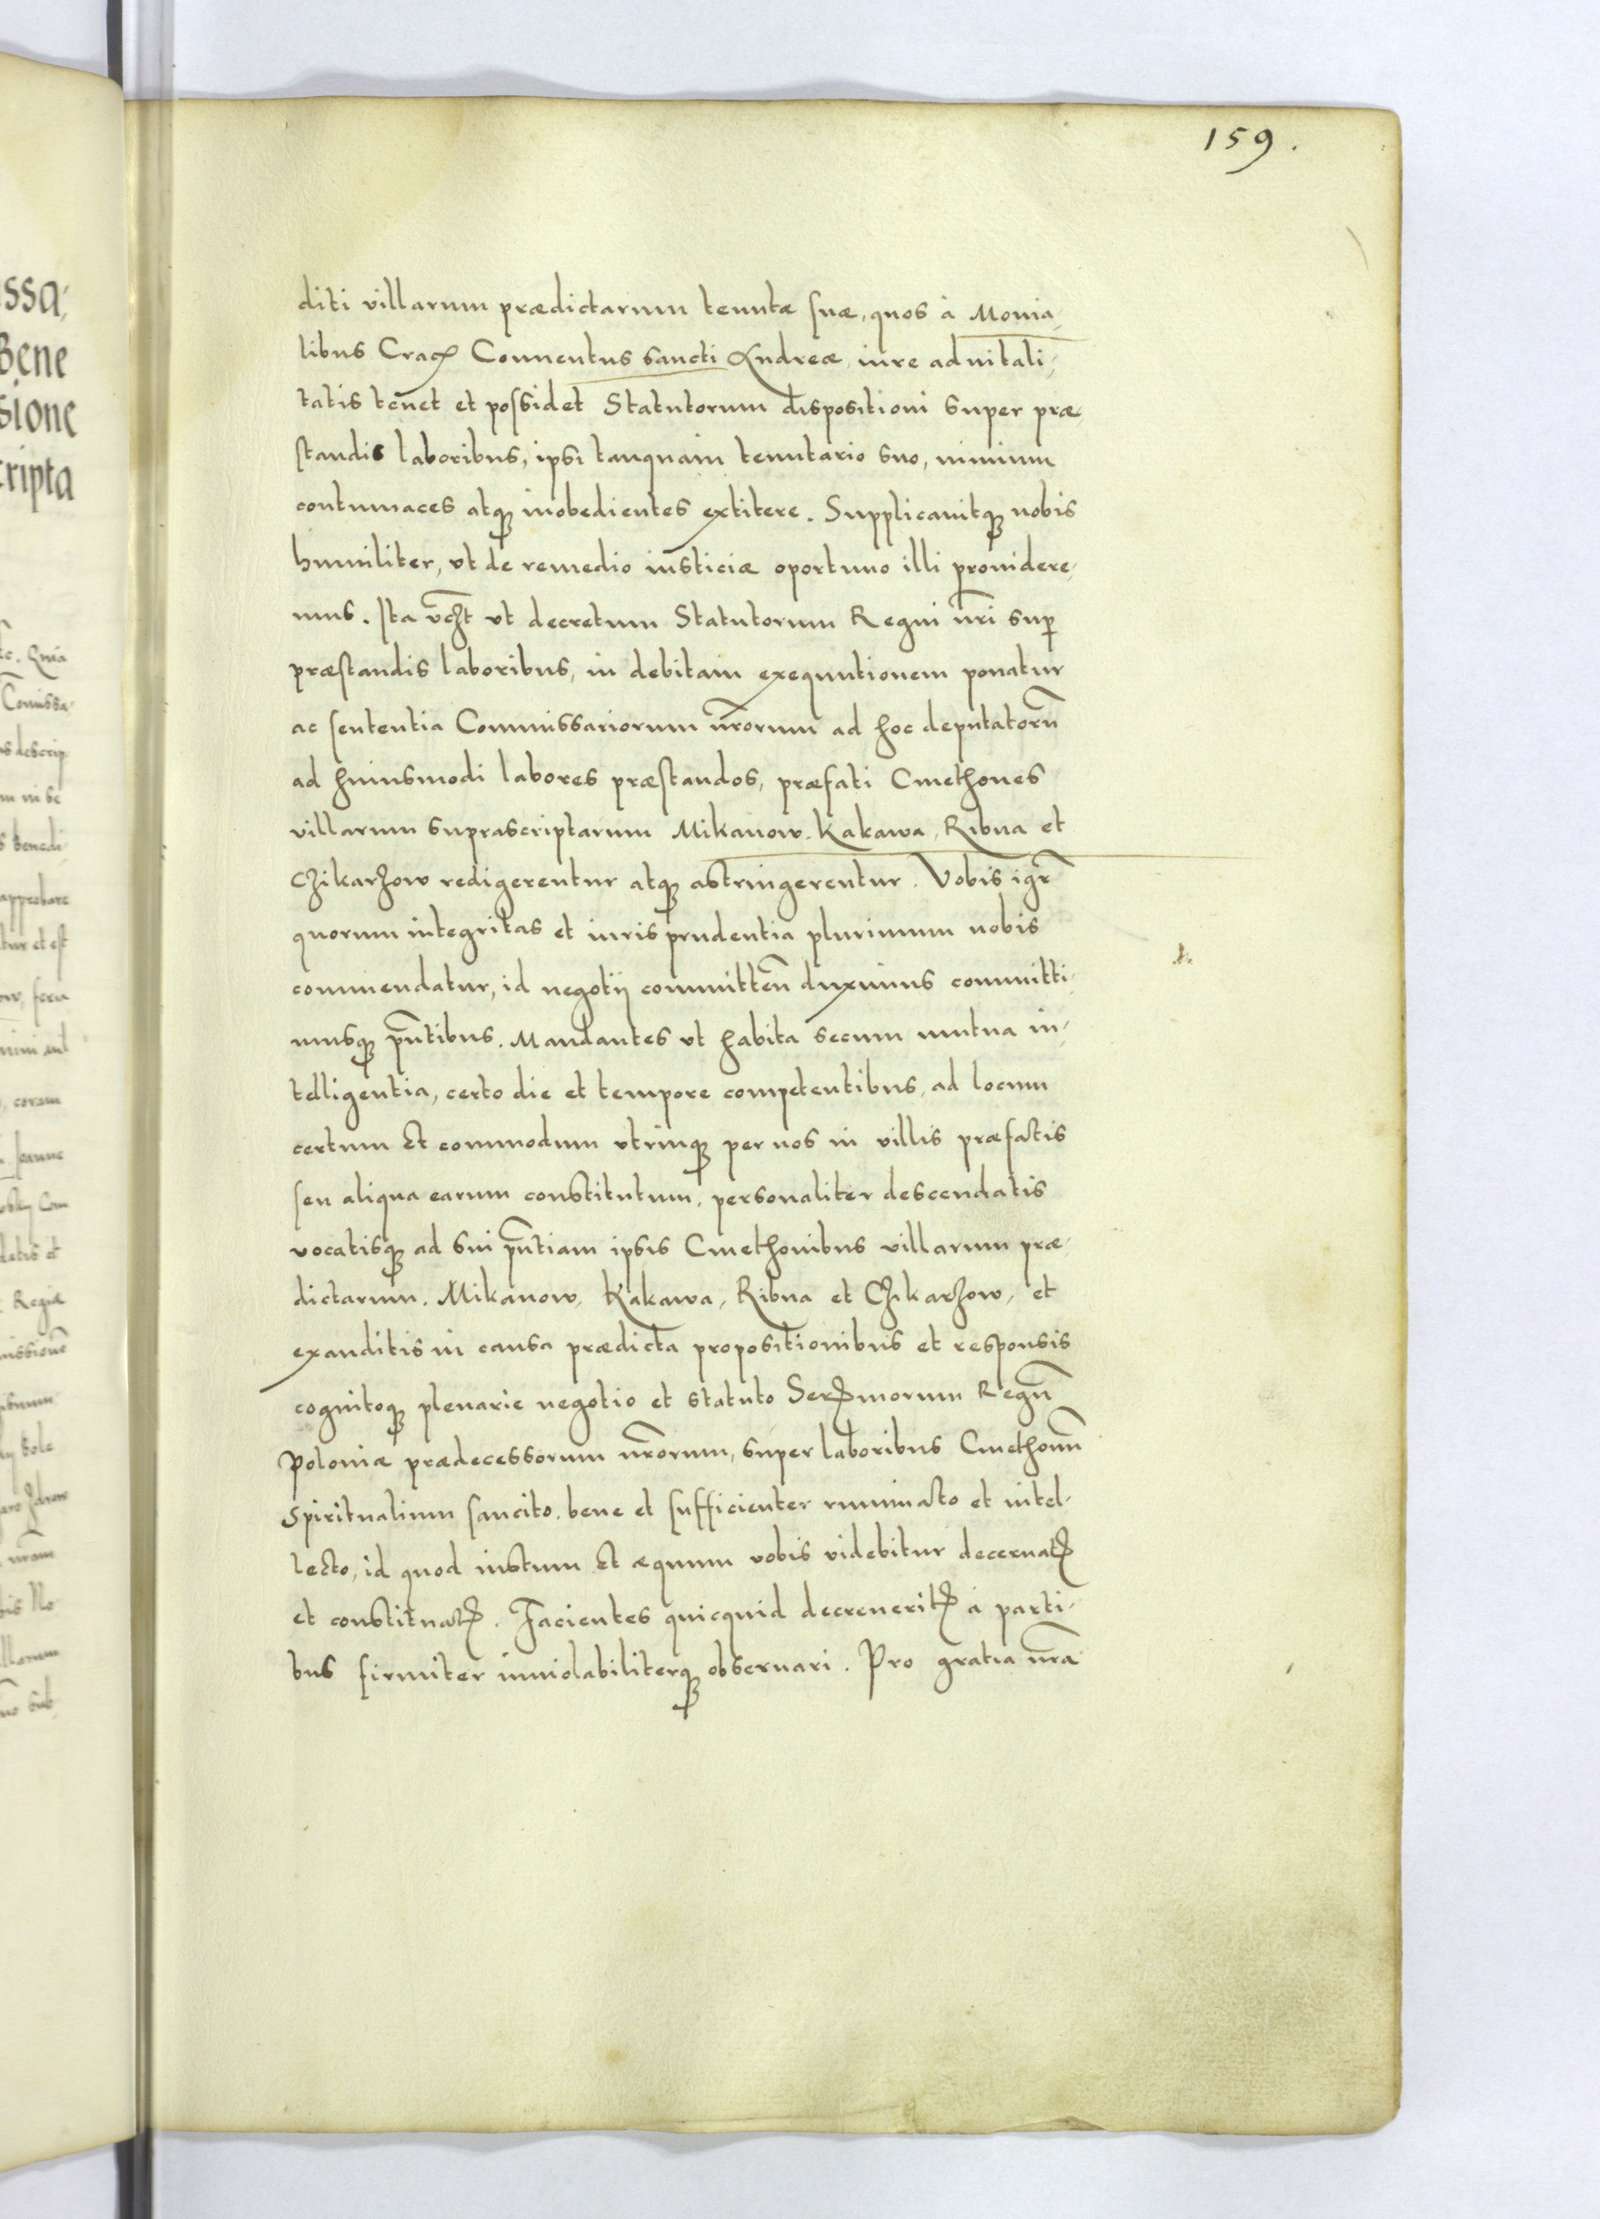 159.
diti villarum prædictarum tenutæ suæ, quos à Monia,
libus Crac Conuentus sancti Andreæ iure aduitali,
tatis tenet et possidet Statutorum dispositioni super præ,
standis laboribus, ipsi tanquam tenutario suo, nimium
contumaces atq inobedientes extitere. Supplicauitq nobis
humiliter, vt de remedio iusticiæ oportuno illi prouidere,
mus. Ita vt decretum Statutorum Regni nr̃i sup
præstandis laboribus, in debitam exequutionem ponatur
ac sententia Commissariorum nr̃orum ad hoc deputatorũ
ad huiusmodi labores præstandos, præfati Cmethones
villarum suprascriptarum Mikanow, Kakawa, Ribna et
Chikarzow redigerentur atq astringerentur. Vobis igr̃
quorum integritas et iuris prudentia plurimum nobis
commendatur, id negotij committeñ duximus committi,
musq pñtibus. Mandantes vt habita secum mutua in,
telligentia, certo die et tempore competentibus, ad locum
certum et commodum vtrinq per uos in villis præfatis
seu aliqua earum constitutum, personaliter descendatis
vocatisq ad sui pñtiam ipsis Cmethonibus villarum præ,
dictarum. Mikanow, Kakawa, Ribna et Chikarzow, et
exauditis in causa prædicta propositionibus et responsis
cognitoq plenarie negotio et statuto Ser morum Regũ
Poloniæ prædecessorum nr̃orum, super laboribus Cmethonũ
Spiritualium sancito, bene et sufficienter ruminato et intel-
lecto, id quod iustum et æquum vobis videbitur decernat
et constituat. Facientes quicquid decreuerit à parti-
bus firmiter inuiolabiliterq obseruari. Pro gratia nr̃a